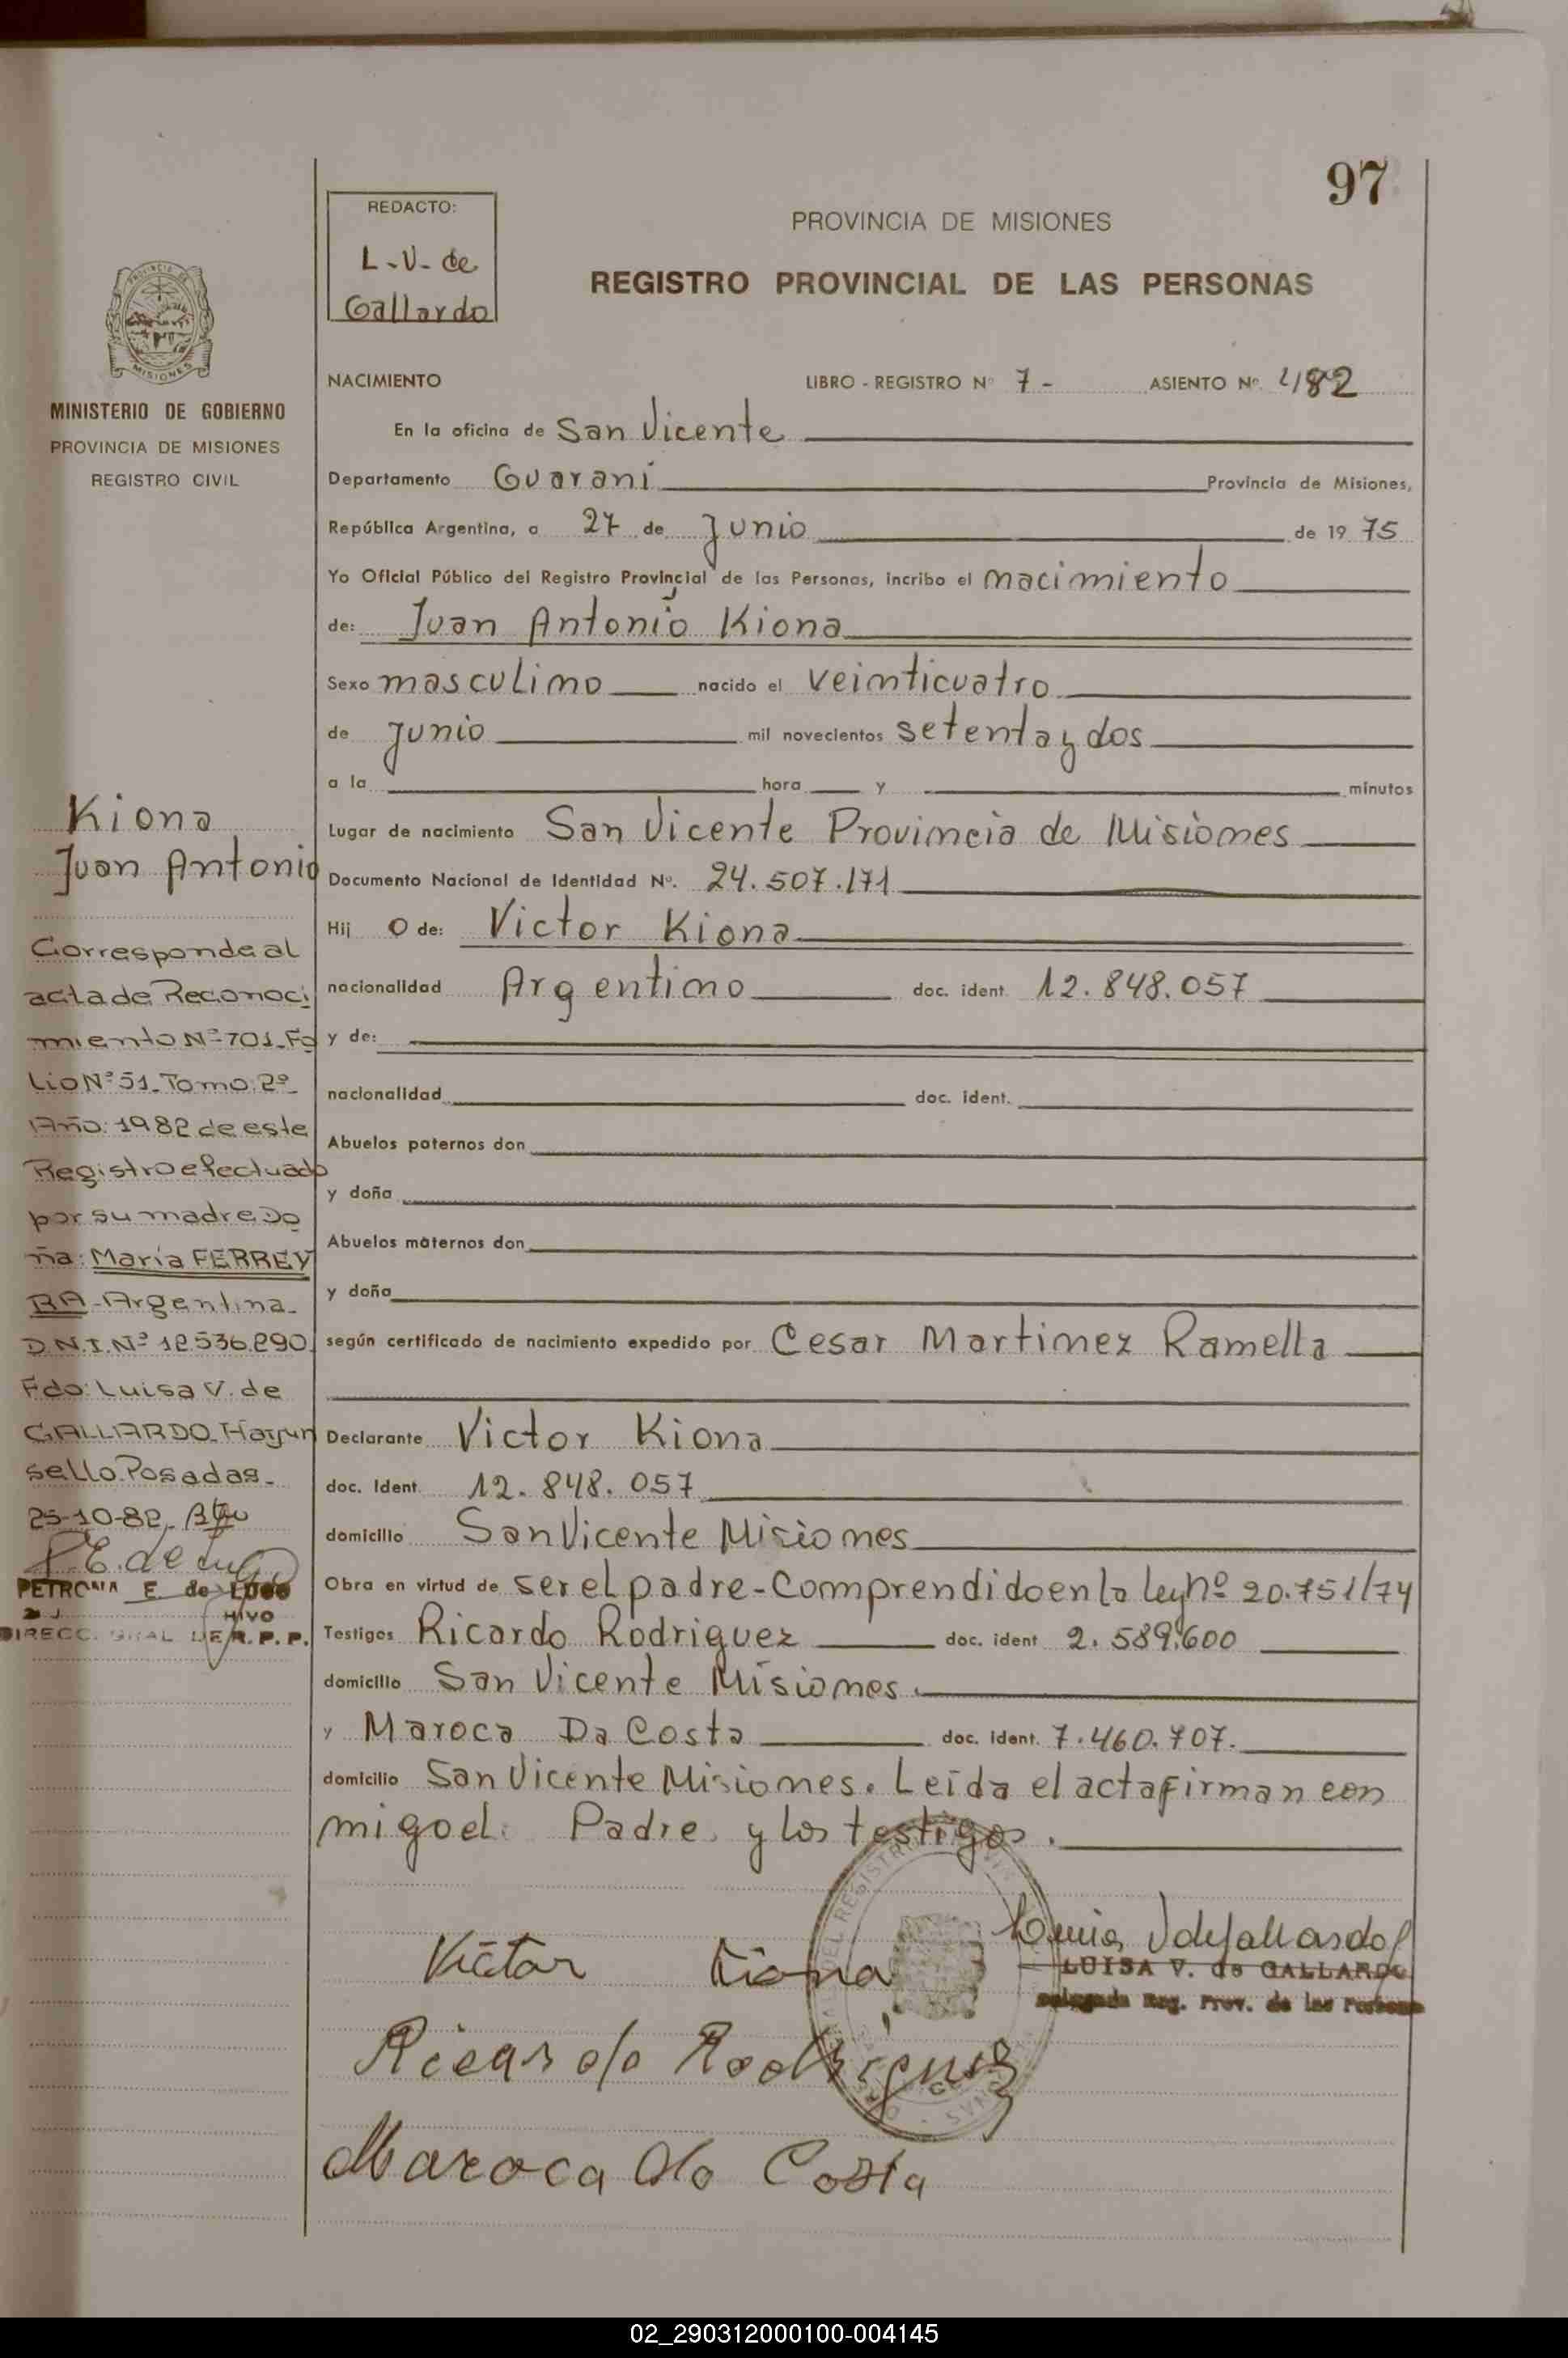 97
REDACTO:
L-V- de
Gallardo
PROVINCIA DE MISIONES
REGISTRO PROVINCIAL DE LAS PERSONAS
MISIONES
MINISTERIO DE GOBIERNO
PROVINCIA DE MISIONES
REGISTRO CIVIL
NACIMIENTO LIBRO - REGISTRO Nº 7- ASIENTO Nº 482
En la oficina de San Vicente
Departamento Guaraní Provincia de Misiones,
República Argentina, a 27 de Junio de 19 75
Yo Oficial Público del Registro Provincial de las Personas, incribo el nacimiento
de: Juan Antonio Kiona
Sexo masculino nacido el veinticuatro
de junio mil novecientos setenta y dos
a la hora y minutos
Lugar de nacimiento San Vicente Provincia de Misiones
Documento Nacional de Identidad Nº. 24.507.171
Hij o de: Victor Kiona
nacionalidad Argentino doc. ident. 12.848.057
y de:
nacionalidad doc. ident.
Abuelos paternos don
y doña
Abuelos maternos don
y doña
según certificado de nacimiento expedido por Cesar Martinez Ramella
Declarante Victor Kiona
doc. Ident. 12.848.057
domicilio San Vicente Misiones
Obra en virtud de ser el padre-Comprendido en la ley nº 20.751/74
Testigos Ricardo Rodriguez doc. ident 2.589.600
domicilio San Vicente Misiones.
y Maroca Da Costa doc. Ident. 7.460.707.
domicilio San Vicente Misiones. Leída el acta firman con
migo el: Padre, y los testigos.
Kiona
Juan Antonio
Corresponde al
acta de Reconoci
miento Nº 701_Fo
lio Nº 51_Tomo: 2º_
Año: 1982 de este
Registro efectuado
por su madre Do
ña: María FERREY
RA-Argentina_
D.N.I. Nº 12.536.290.
Fdo: Luisa V. de
GALLARDO_Hay un
sello. Posadas_
25-10-82.
P.E. de Lugo
PETRONA E. de LUGO
DIRECC. GRAL DE R. P. P.
Victor Kiona
Luisa V de Gallardo
LUISA V. de GALLARDO
Delegada Reg. Prov. de las Personas
Ricardo Rodriguez
Maroca da Costa
02_290312000100-004145